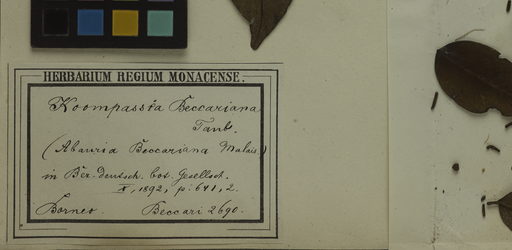 HERBARIUM REGIUM MONACENSE.
Koompassia Beccariana
Taub.
(Abauria Beccariana Malais.)
in Ber. deutsch. bot. Gesellsch.
X, 1892, p. 641, 2.
Borneo. Beccari 2690.